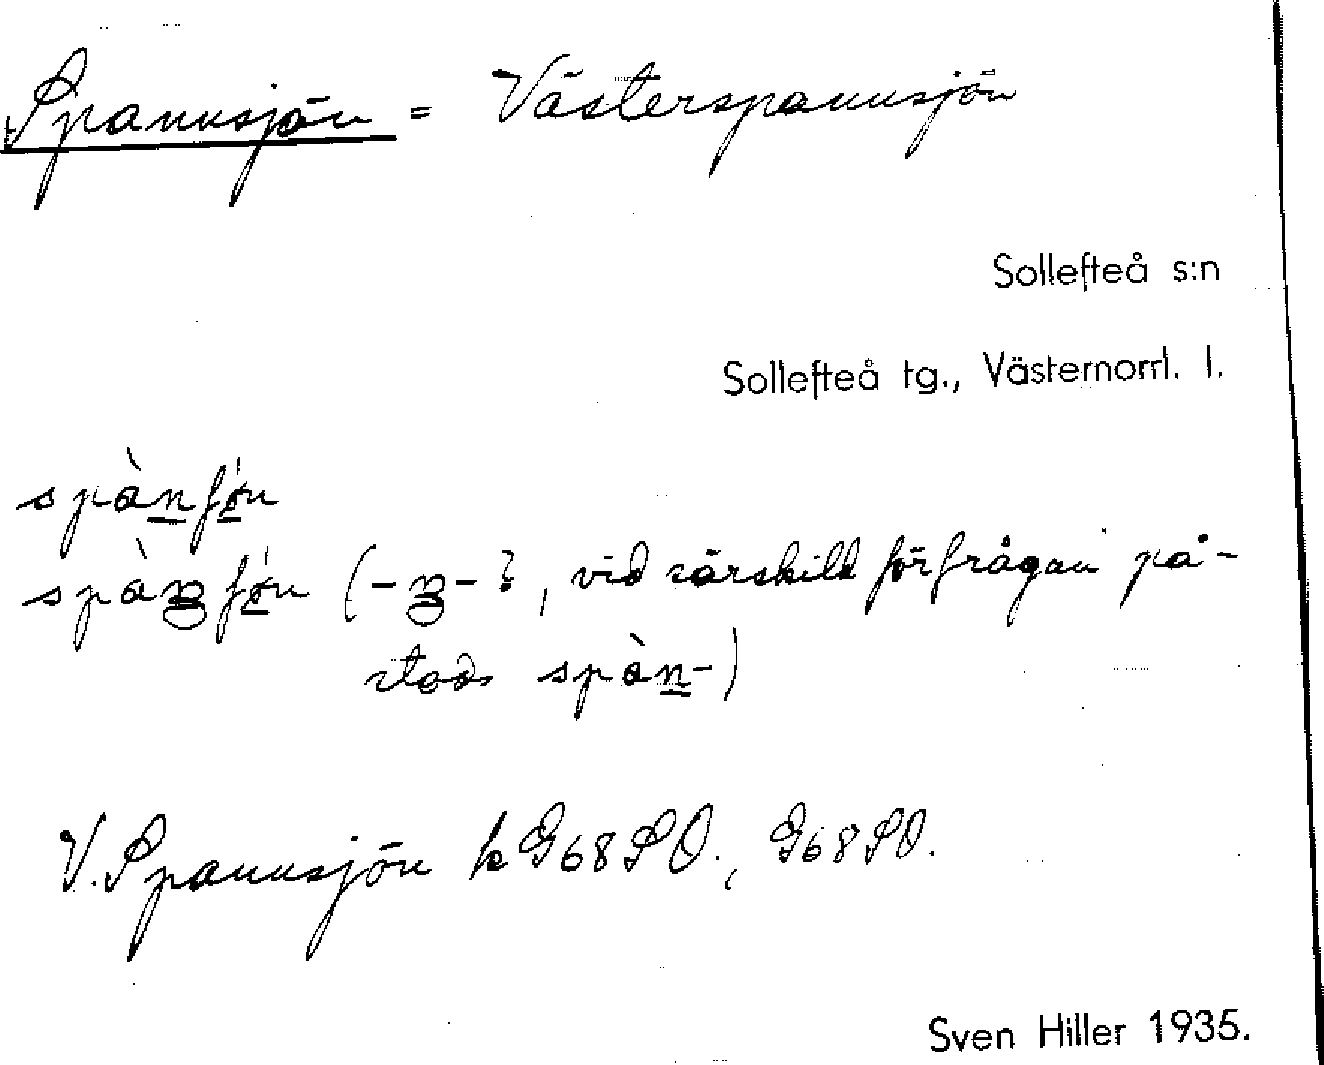 Spannsjön = Västerspannsjön
Sollefteå s:n
Sollefteå tg., Västernorrl. l.
vid särskild förfrågan på-
stods spàn-)
V. Spannsjön k G68SO., G68SO.
Sven Hiller 1935.